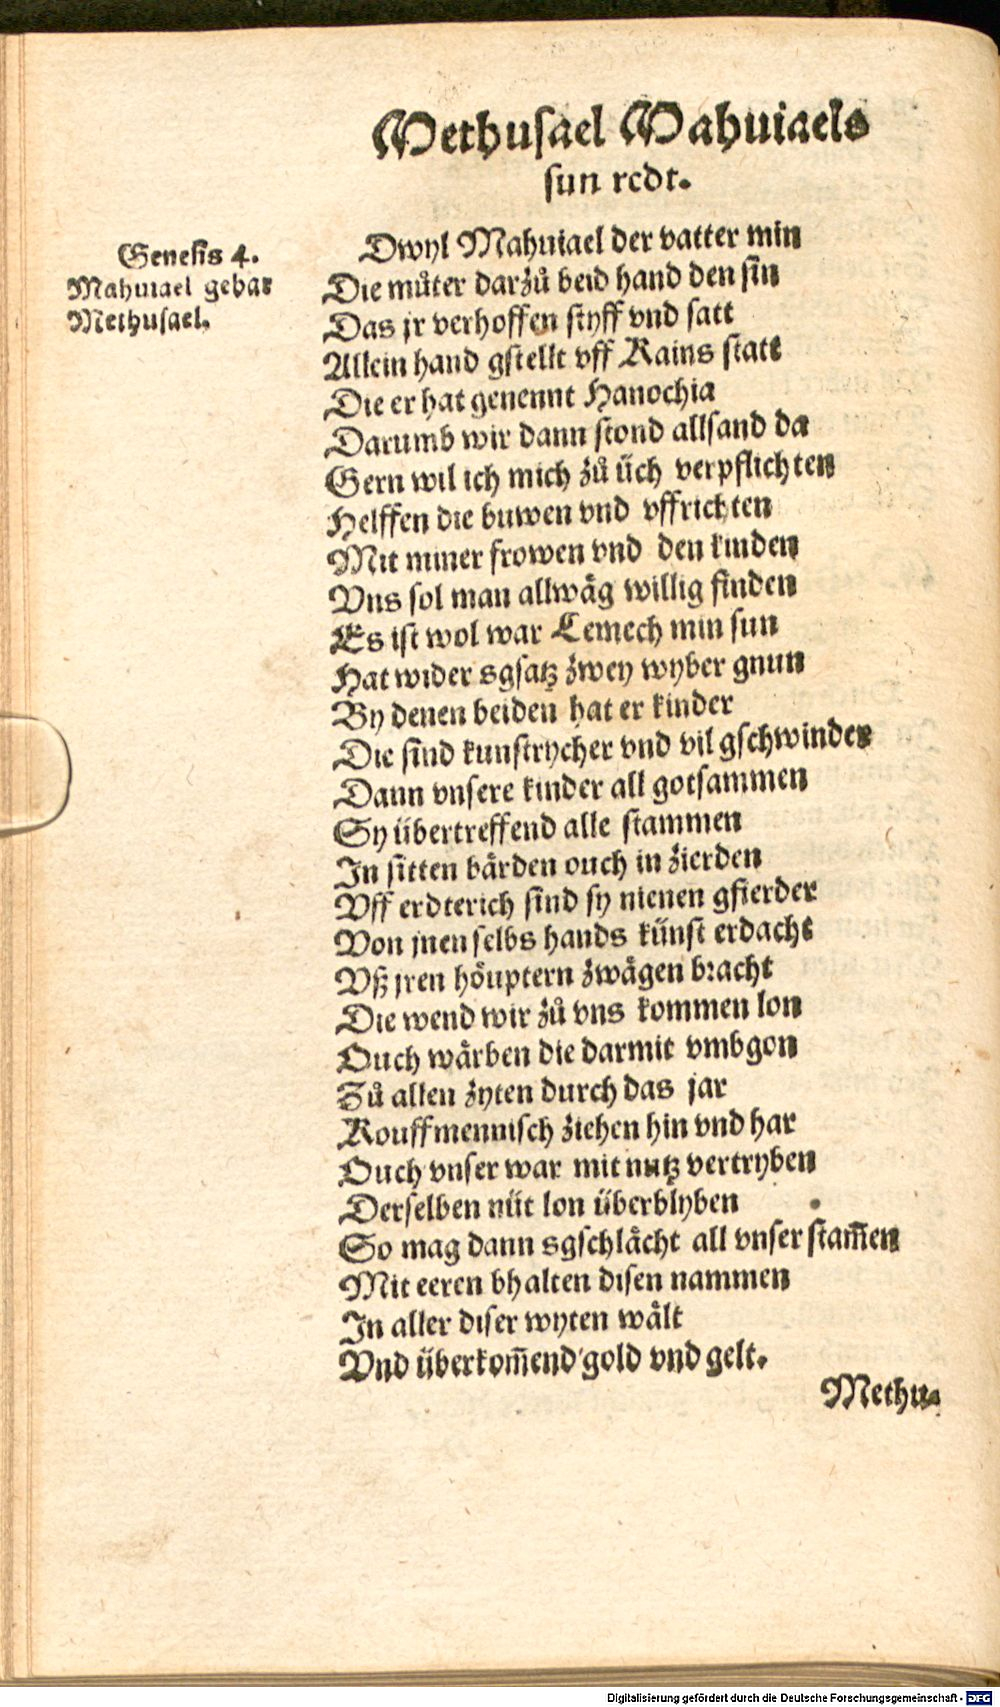 Methusael Mahuiaels
sun redt.
Genesis 4.
Mahuiael gebar
Methusael.
Dwyl Mahuiael der vatter min
Die můter darzů beid hand den sin
Das jr verhoffen styff vnd satt
Allein hand gstellt vff Kains statt
Die er hat genennt Hanochia
Darumb wir dann stond allsand da
Gern wil ich mich zů üch verpflichten
Helffen die buwen vnd vffrichten
Mit miner frowen vnd den kinden
Vns sol man allwåg willig finden
Es ist wol war Lemech min sun
Hat wider sgsatz zwey wyber gnun
By denen beiden hat er kinder
Die sind kunstrycher vnd vil gschwinder
Dann vnsere kinder all gotsammen
Sy übertreffend alle stammen
In sitten bården ouch in zierden
Vff erdterich sind sy nienen gfierder
Von jnen selbs hands künst erdacht
Vß jren höuptern zwågen bracht
Die wend wir zů vns kommen lon
Ouch wårben die darmit vmbgon
Zů allen zyten durch das jar
Kouffmennisch ziehen hin vnd har
Ouch vnser war mit nutz vertryben
Derselben nüt lon überblyben
So mag dann sgschlåcht all vnser stam̃en
Mit eeren bhalten disen nammen
In aller diser wyten wålt
Vnd überkom̃end gold vnd gelt.
Methu-
Digitalisierung gefördert durch die Deutsche Forschungsgemeinschaft - DFG